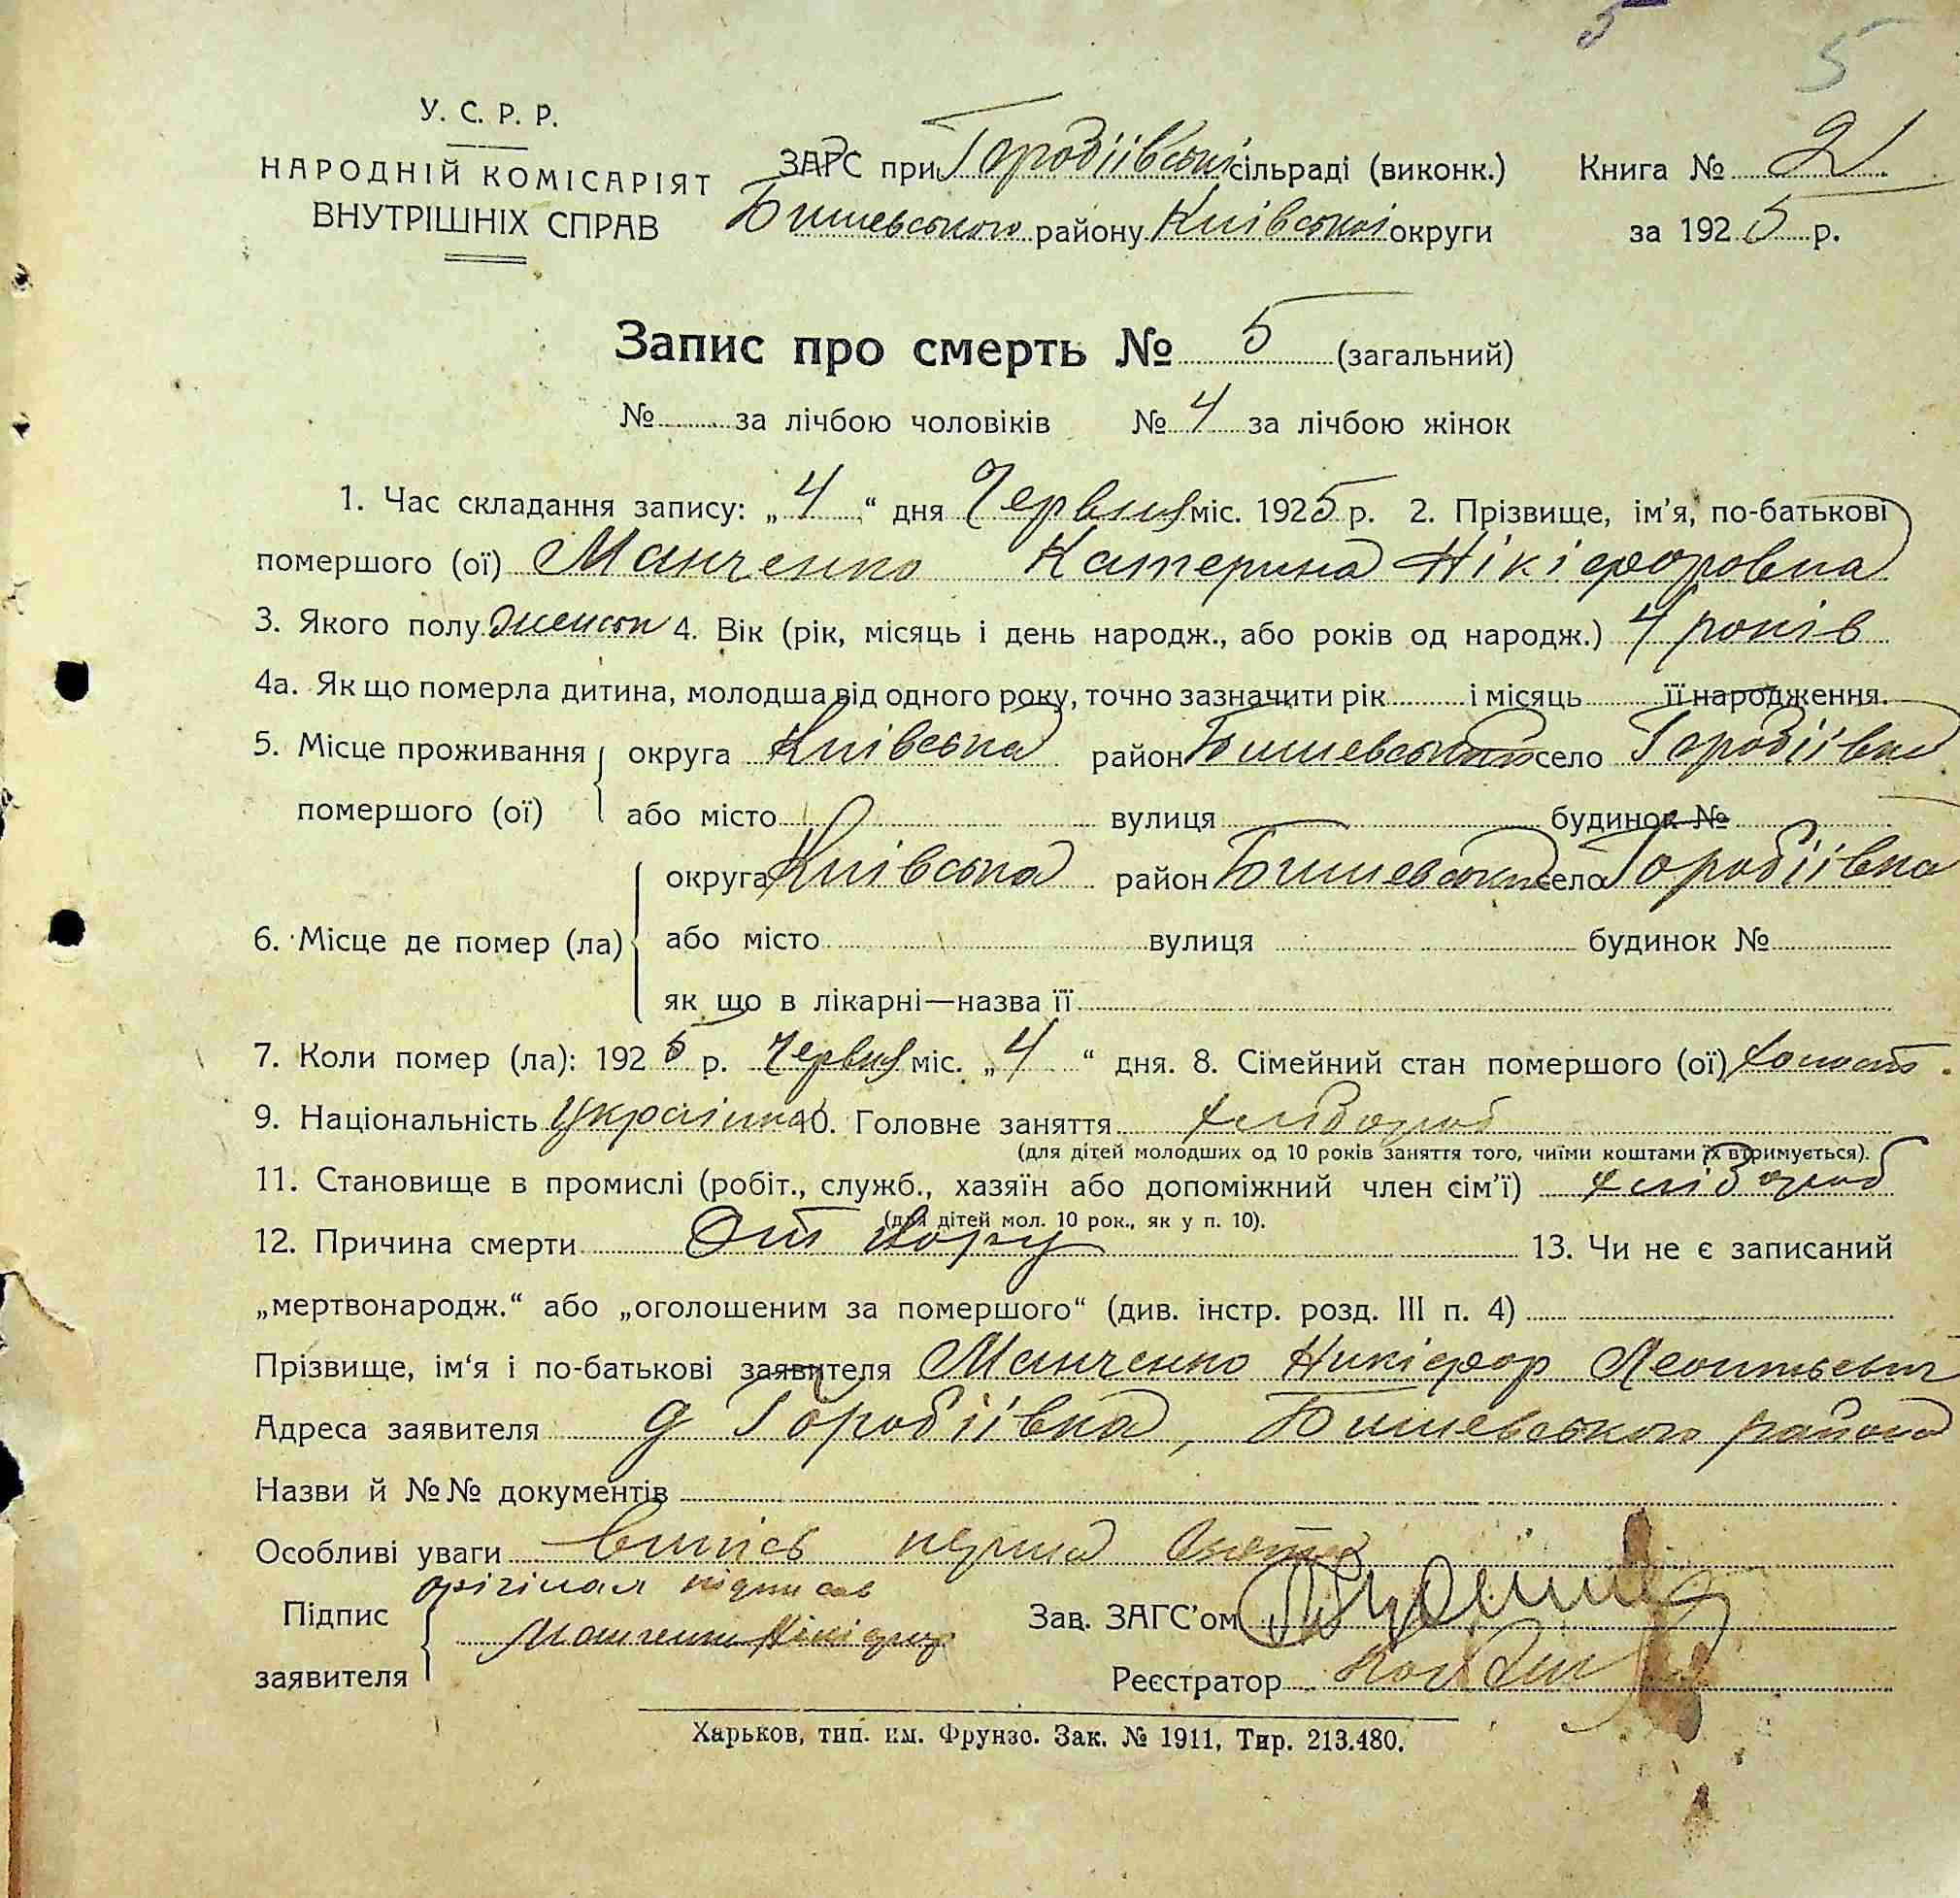 5
5
У. С. Р. Р.
НАРОДНІЙ КОМІСАРІЯТ
ВНУТРІШНІХ СПРАВ
ЗАГС при Горобіївські сільраді (виконк.)
Бишевського району Київської округи
Книга № 2
за 1925 р.
Запис про смерть № 5 (загальний)
№ за лічбою чоловіків № 4 за лічбою жінок
1. Час складання запису: „4“ дня Червня міс. 1925 р. 2. Прізвище, ім'я, по-батькові
помершого (ої) Манченко Катерина Нікіфоровна
3. Якого полу женск 4. Вік (рік, місяць і день народж., або років од народж.) 4 років
4а. Як що померла дитина, молодша від одного року, точно зазначити рік і місяць її народження.
5. Місце проживання помершого (ої) округа Київська район Бишевський село Горобіівка
або місто вулиця будинок №
6. Місце де помер (ла) округа Київська район Бишевський село Горобіівка
або місто вулиця будинок №
як що в лікарні—назва її
7. Коли помер (ла): 1925 р. Червня міс. „4“ дня. 8. Сімейний стан помершого (ої) холост.
9. Національність Українка 10. Головне заняття хлібороб
(для дітей молодших од 10 років заняття того, чиїми коштами їх втримується).
11. Становище в промислі (робіт., служб., хазяїн або допоміжний член сім'ї) хлібороб
(для дітей мол. 10 рок., як у п. 10).
12. Причина смерти От кору 13. Чи не є записаний
„мертвонародж.“ або „оголошеним за помершого“ (див. інстр. розд. III п. 4)
Прізвище, ім'я і по-батькові заявителя Манченко Никіфор Леонтьевич
Адреса заявителя д Горобіівка, Бишевського района
Назви й №№ документів
Особливі уваги Випісь перша
орігінал підписав
Підпис заявителя Манченко Нікіфор
Зав. ЗАГС'ом
Реєстратор
Харьков, тип. им. Фрунзе. Зак. № 1911, Тир. 213.480.